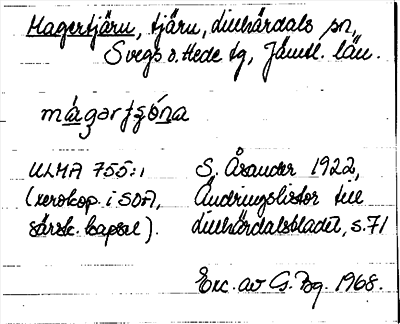 Magertjärn, tjärn, Lillhärdals sn,
Svegs o. Hede tg, Jämtl. län.
mágərtʃǿna
ULMA 755:1 S. Åsander 1922,
(xerokop. i SOFA, Ändringslistor till
särsk. kapsel). Lillhärdalsbladet, s. 71
Exc. av G. Bg. 1968.